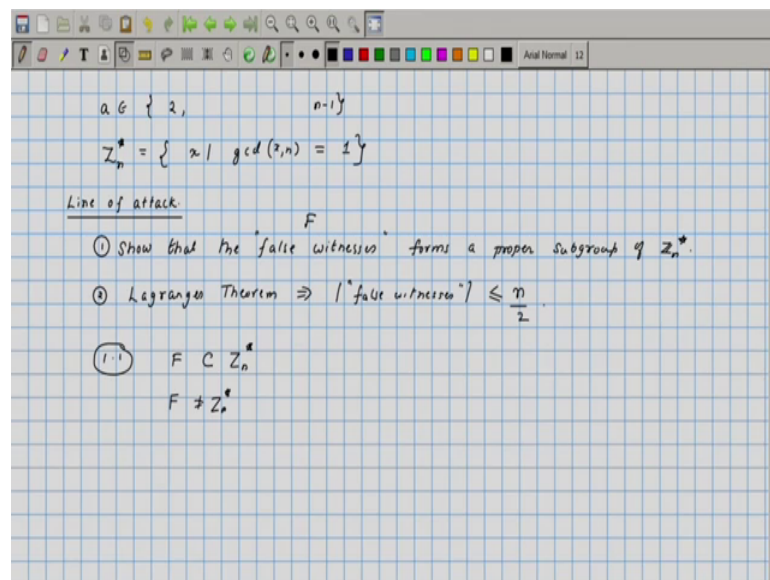 T Arial Normal 12
a ∈ { 2, n-1}
Z*ₙ = { x | gcd(x,n) = 1}
Line of attack.
F
① Show that the "false witnesses" forms a proper subgroup of Z*ₙ.
② Lagranges Theorem ⇒ |"false witnesses"| ≤ n/2.
1.1 F ⊂ Z*ₙ
F ≠ Z*ₙ